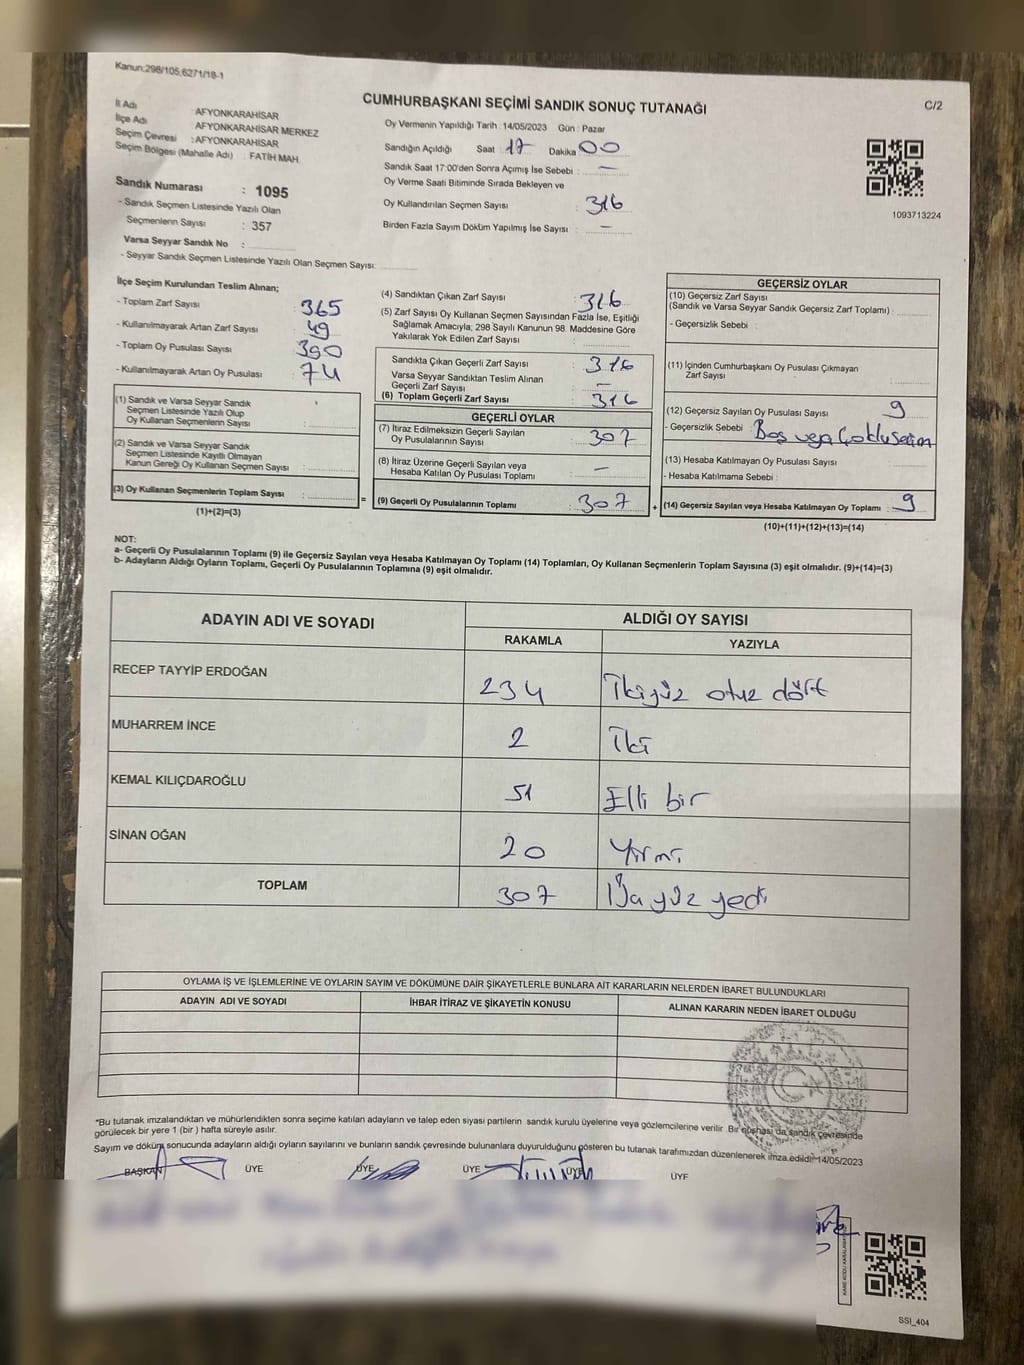 Kanun:298/105,6271/18-1
CUMHURBAŞKANI SEÇİMİ SANDIK SONUÇ TUTANAĞI
C/2
İl Adı : AFYONKARAHİSAR
İlçe Adı : AFYONKARAHİSAR MERKEZ
Seçim Çevresi : AFYONKARAHİSAR
Seçim Bölgesi (Mahalle Adı) : FATİH MAH.
Sandık Numarası : 1095
- Sandık Seçmen Listesinde Yazılı Olan
Seçmenlerin Sayısı : 357
Varsa Seyyar Sandık No :
- Seyyar Sandık Seçmen Listesinde Yazılı Olan Seçmen Sayısı:
Oy Vermenin Yapıldığı Tarih : 14/05/2023 Gün : Pazar
Sandığın Açıldığı Saat 17 Dakika 00
Sandık Saat 17:00'den Sonra Açımış İse Sebebi : —
Oy Verme Saati Bitiminde Sırada Bekleyen ve
Oy Kullandırılan Seçmen Sayısı : 316
Birden Fazla Sayım Döküm Yapılmış İse Sayısı : —
1093713224
İlçe Seçim Kurulundan Teslim Alınan;
- Toplam Zarf Sayısı : 365
- Kullanılmayarak Artan Zarf Sayısı : 49
- Toplam Oy Pusulası Sayısı : 390
- Kullanılmayarak Artan Oy Pusulası : 74
(1) Sandık ve Varsa Seyyar Sandık
Seçmen Listesinde Yazılı Olup
Oy Kullanan Seçmenlerin Sayısı :
(2) Sandık ve Varsa Seyyar Sandık
Seçmen Listesinde Kayıtlı Olmayan
Kanun Gereği Oy Kullanan Seçmen Sayısı :
(3) Oy Kullanan Seçmenlerin Toplam Sayısı :
(1)+(2)=(3)
(4) Sandıktan Çıkan Zarf Sayısı : 316
(5) Zarf Sayısı Oy Kullanan Seçmen Sayısından Fazla İse, Eşitliği
Sağlamak Amacıyla; 298 Sayılı Kanunun 98. Maddesine Göre
Yakılarak Yok Edilen Zarf Sayısı :
Sandıkta Çıkan Geçerli Zarf Sayısı : 316
Varsa Seyyar Sandıktan Teslim Alınan
Geçerli Zarf Sayısı : —
(6) Toplam Geçerli Zarf Sayısı : 316
GEÇERLİ OYLAR
(7) İtiraz Edilmeksizin Geçerli Sayılan
Oy Pusulalarının Sayısı : 307
(8) İtiraz Üzerine Geçerli Sayılan veya
Hesaba Katılan Oy Pusulası Toplamı : —
= (9) Geçerli Oy Pusulalarının Toplamı : 307
GEÇERSİZ OYLAR
(10) Geçersiz Zarf Sayısı
(Sandık ve Varsa Seyyar Sandık Geçersiz Zarf Toplamı) :
- Geçersizlik Sebebi :
(11) İçinden Cumhurbaşkanı Oy Pusulası Çıkmayan
Zarf Sayısı :
(12) Geçersiz Sayılan Oy Pusulası Sayısı : 9
- Geçersizlik Sebebi : Boş veya Çoklu Seçim
(13) Hesaba Katılmayan Oy Pusulası Sayısı :
- Hesaba Katılmama Sebebi :
+ (14) Geçersiz Sayılan veya Hesaba Katılmayan Oy Toplamı : 9
(10)+(11)+(12)+(13)=(14)
NOT:
a- Geçerli Oy Pusulalarının Toplamı (9) ile Geçersiz Sayılan veya Hesaba Katılmayan Oy Toplamı (14) Toplamları, Oy Kullanan Seçmenlerin Toplam Sayısına (3) eşit olmalıdır. (9)+(14)=(3)
b- Adayların Aldığı Oyların Toplamı, Geçerli Oy Pusulalarının Toplamına (9) eşit olmalıdır.
ADAYIN ADI VE SOYADI
ALDIĞI OY SAYISI
RAKAMLA YAZIYLA
RECEP TAYYİP ERDOĞAN 234 İkiyüz otuz dört
MUHARREM İNCE 2 İki
KEMAL KILIÇDAROĞLU 51 Elli bir
SİNAN OĞAN 20 Yirmi
TOPLAM 307 Üç yüz yedi
OYLAMA İŞ VE İŞLEMLERİNE VE OYLARIN SAYIM VE DÖKÜMÜNE DAİR ŞİKAYETLERLE BUNLARA AİT KARARLARIN NELERDEN İBARET BULUNDUKLARI
ADAYIN ADI VE SOYADI İHBAR İTİRAZ VE ŞİKAYETİN KONUSU ALINAN KARARIN NEDEN İBARET OLDUĞU
*Bu tutanak imzalandıktan ve mühürlendikten sonra seçime katılan adayların ve talep eden siyasi partilerin sandık kurulu üyelerine veya gözlemcilerine verilir. Bir nüshası da sandık çevresinde
görülecek bir yere 1 (bir ) hafta süreyle asılır.
Sayım ve döküm sonucunda adayların aldığı oyların sayılarını ve bunların sandık çevresinde bulunanlara duyurulduğunu gösteren bu tutanak tarafımızdan düzenlenerek imza edildi. 14/05/2023
BAŞKAN ÜYE ÜYE ÜYE ÜYE ÜYE
SSI_404